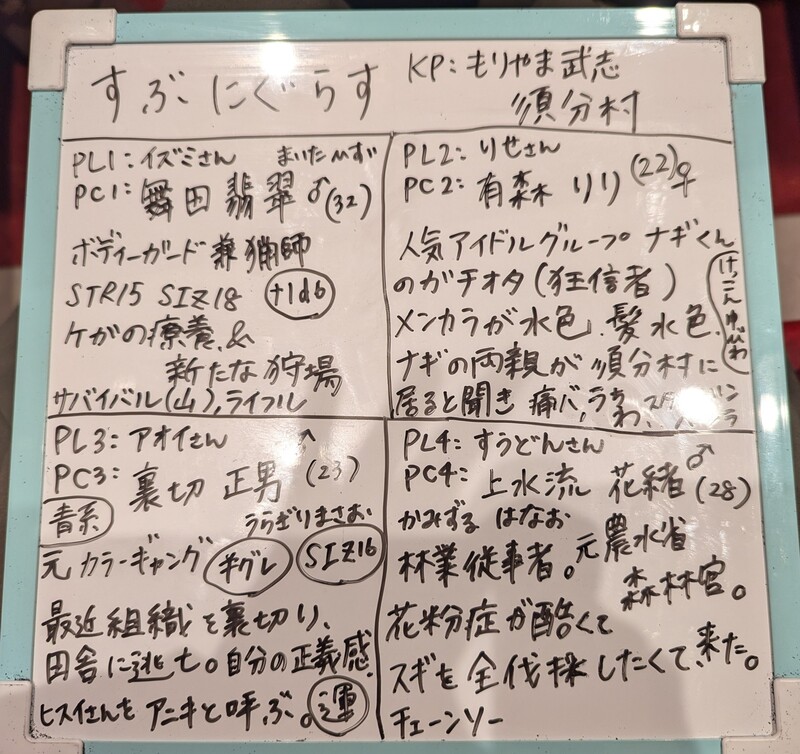 すぶにぐらす
KP: もりやま武志
須分村
PL1: イズミさん
まいた ひすい
PC1: 舞田 翡翠 ♂(32)
ボディーガード兼猟師
STR15 SIZ18 +1d6
ケガの療養、&
新たな狩場
サバイバル(山),ライフル
PL2: りせさん
PC2: 有森 りり (22)♀
人気アイドルグループ ナギくん
のガチオタ(狂信者)
メンカラが水色、髪水色、
けっこんゆびわ
ナギの両親が須分村に
居ると聞き 痛バ,うち
わ、
PL3: アオイさん
PC3: 裏切 正男 ♂(23)
青系
うらぎりまさお
元カラーギャング 半グレ SIZ16
最近組織を裏切り、
田舎に逃亡。自分の正義感、
ヒスイさんを アニキと呼ぶ。運
PL4: すうどんさん
PC4: 上水流 花緒 ♂(28)
かみずる はなお
林業従事者。元農水省
森林官。
花粉症が酷くて
スギを全伐採したくて、来た。
チェーンソー